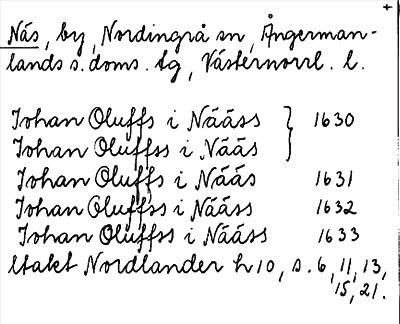 Näs, by, Nordingrå sn, Ångerman-
lands s. doms. tg, Västernorrl. l.
Johan Oluffs i Nääss } 1630
Johan Oluffss i Nääs
Johan Oluffs i Nääs 1631
Johan Oluffss i Nääss 1632
Johan Oluffss i Nääss 1633
Utakt Nordlander h 10, s. 6, 11, 13,
15, 21.